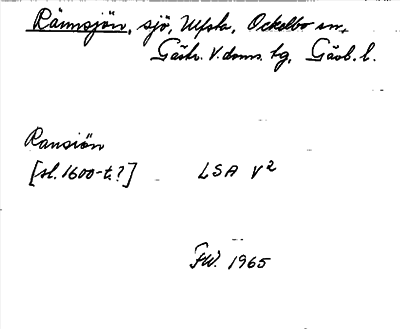 Rännsjön, sjö, Ulfsta, Ockelbo sn,
Gästr. V. doms. tg, Gävb. l.
Ransiön
[sl. 1600-t.?] LSA V2
FW. 1965